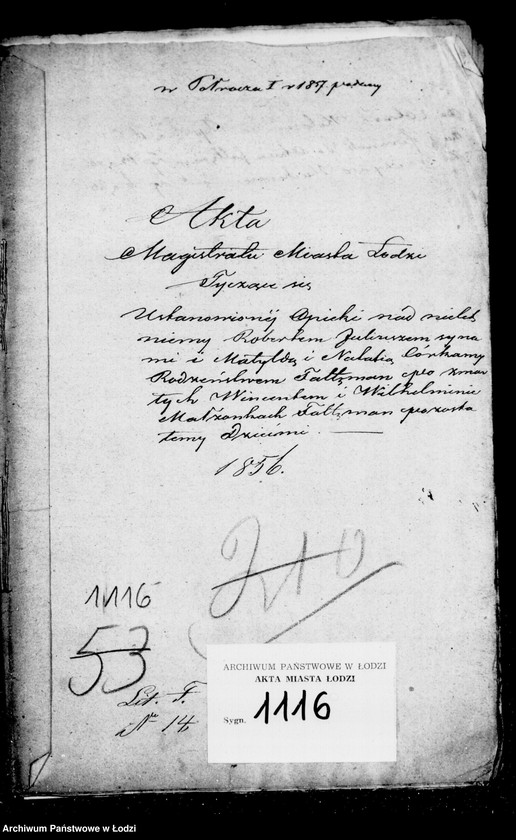 w Półroczu I r 1857
Akta
Magistratu Miasta Łodzi
Tyczące się
Ustanowionéj Opieki nad nielet
niemy Robertem Juliuszem syna
mi i Matyldą i Natalią Corkamy
Rodzeństwem Faltzman po zmar
łych Wincentem i Wilhelminie
Małżonkach Faltzman pozosta
łemy Dziećmi.
1856.
210
1116
53
Lit. F.
No 14
ARCHIWUM PAŃSTWOWE W ŁODZI
AKTA MIASTA ŁODZI
Sygn. 1116
Archiwum Państwowe w Łodzi